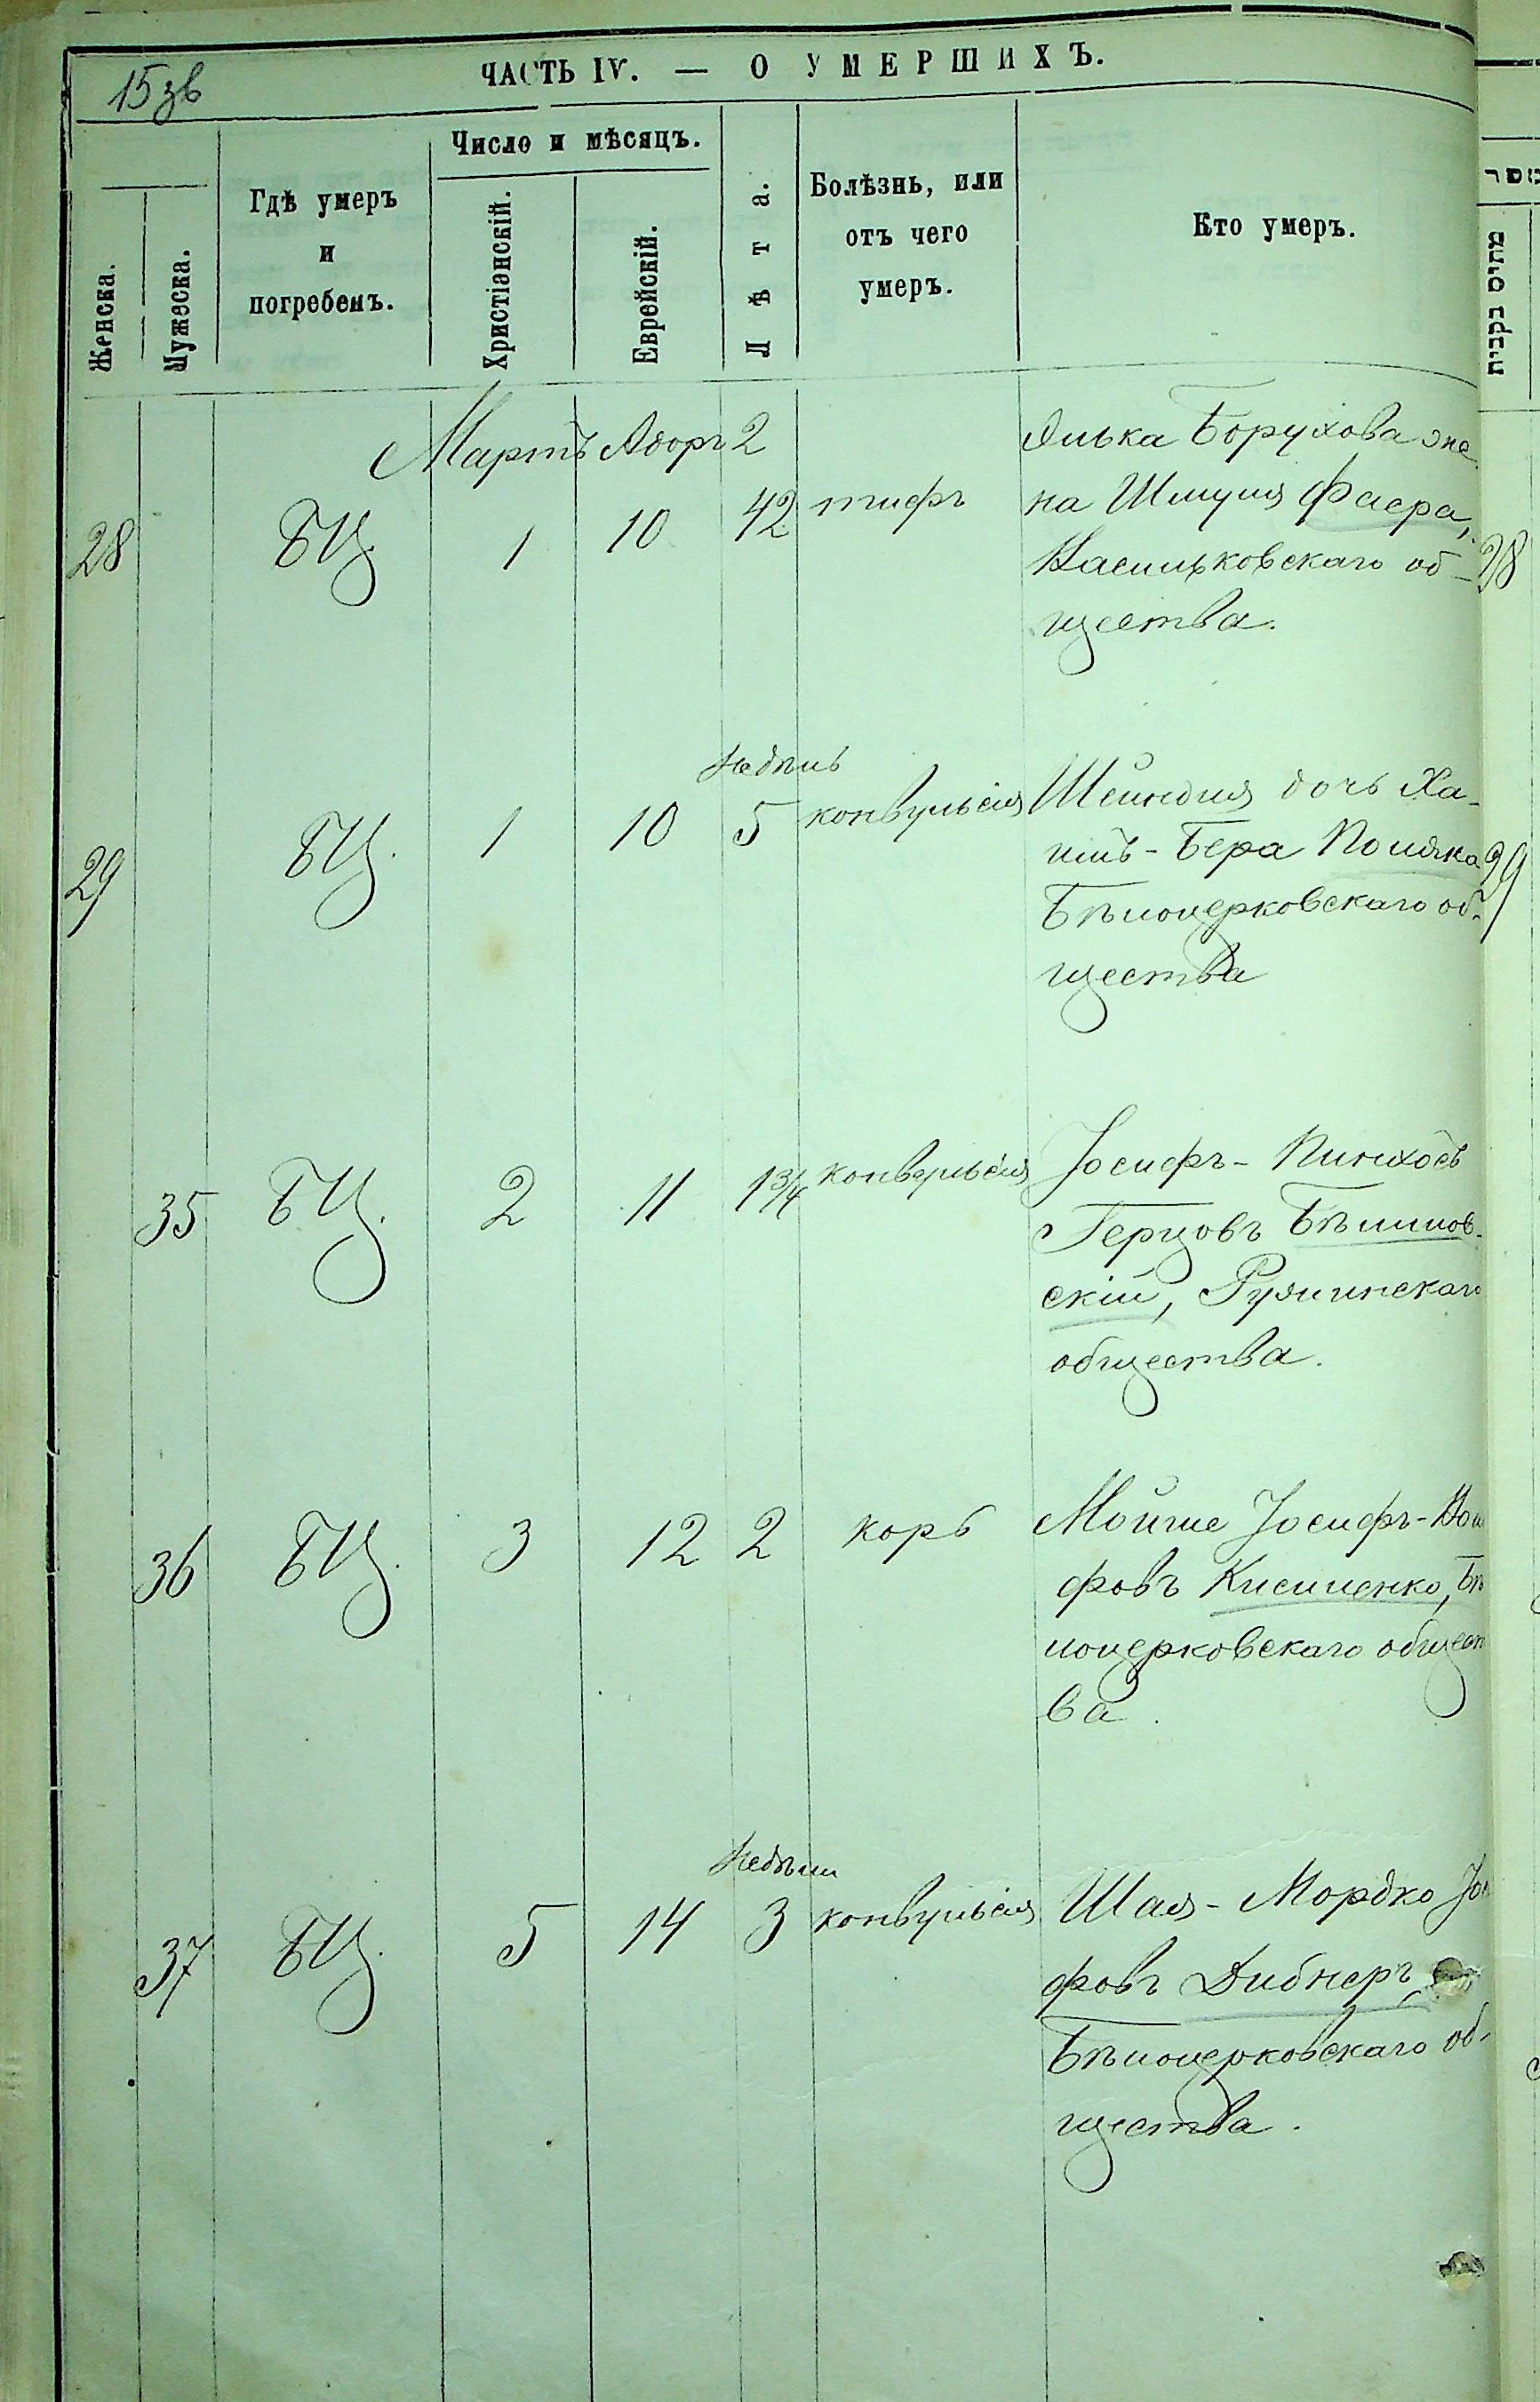 15 зв
ЧАСТЬ IV. — О УМЕРШИХЪ.
Женска.
Мужеска.
Гдѣ умеръ
и
погребенъ.
Число и мѣсяцъ.
Христіанскій.
Еврейскій.
Лѣта.
Болѣзнь, или
отъ чего
умеръ.
Кто умеръ.
מתים בקבית
Мартъ Адоръ 2
28 БЦ. 1 10 42 тифъ
Элька Борухова же
на Шмуля Фаера,
Васильковскаго об-
щества.
28
29 БЦ. 1 10 недѣль 5 конвульсія
Шейндля дочь Ха-
имъ-Бера Поляка
Бѣлоцерковскаго об-
щества
29
35 БЦ. 2 11 1 3/4 конвульсія
Іосифъ-Пинхосъ
Герцовъ Бѣлилов-
скій, Ружинскаго
общества.
36 БЦ. 3 12 2 корь
Мойше Іосифъ-
фовъ Кисиленко, Бѣ
лоцерковскаго общест
ва.
37 БЦ. 5 14 недѣли 3 конвульсія
Шая-Мордко
фовъ Дибнеръ,
Бѣлоцерковскаго об-
щества.